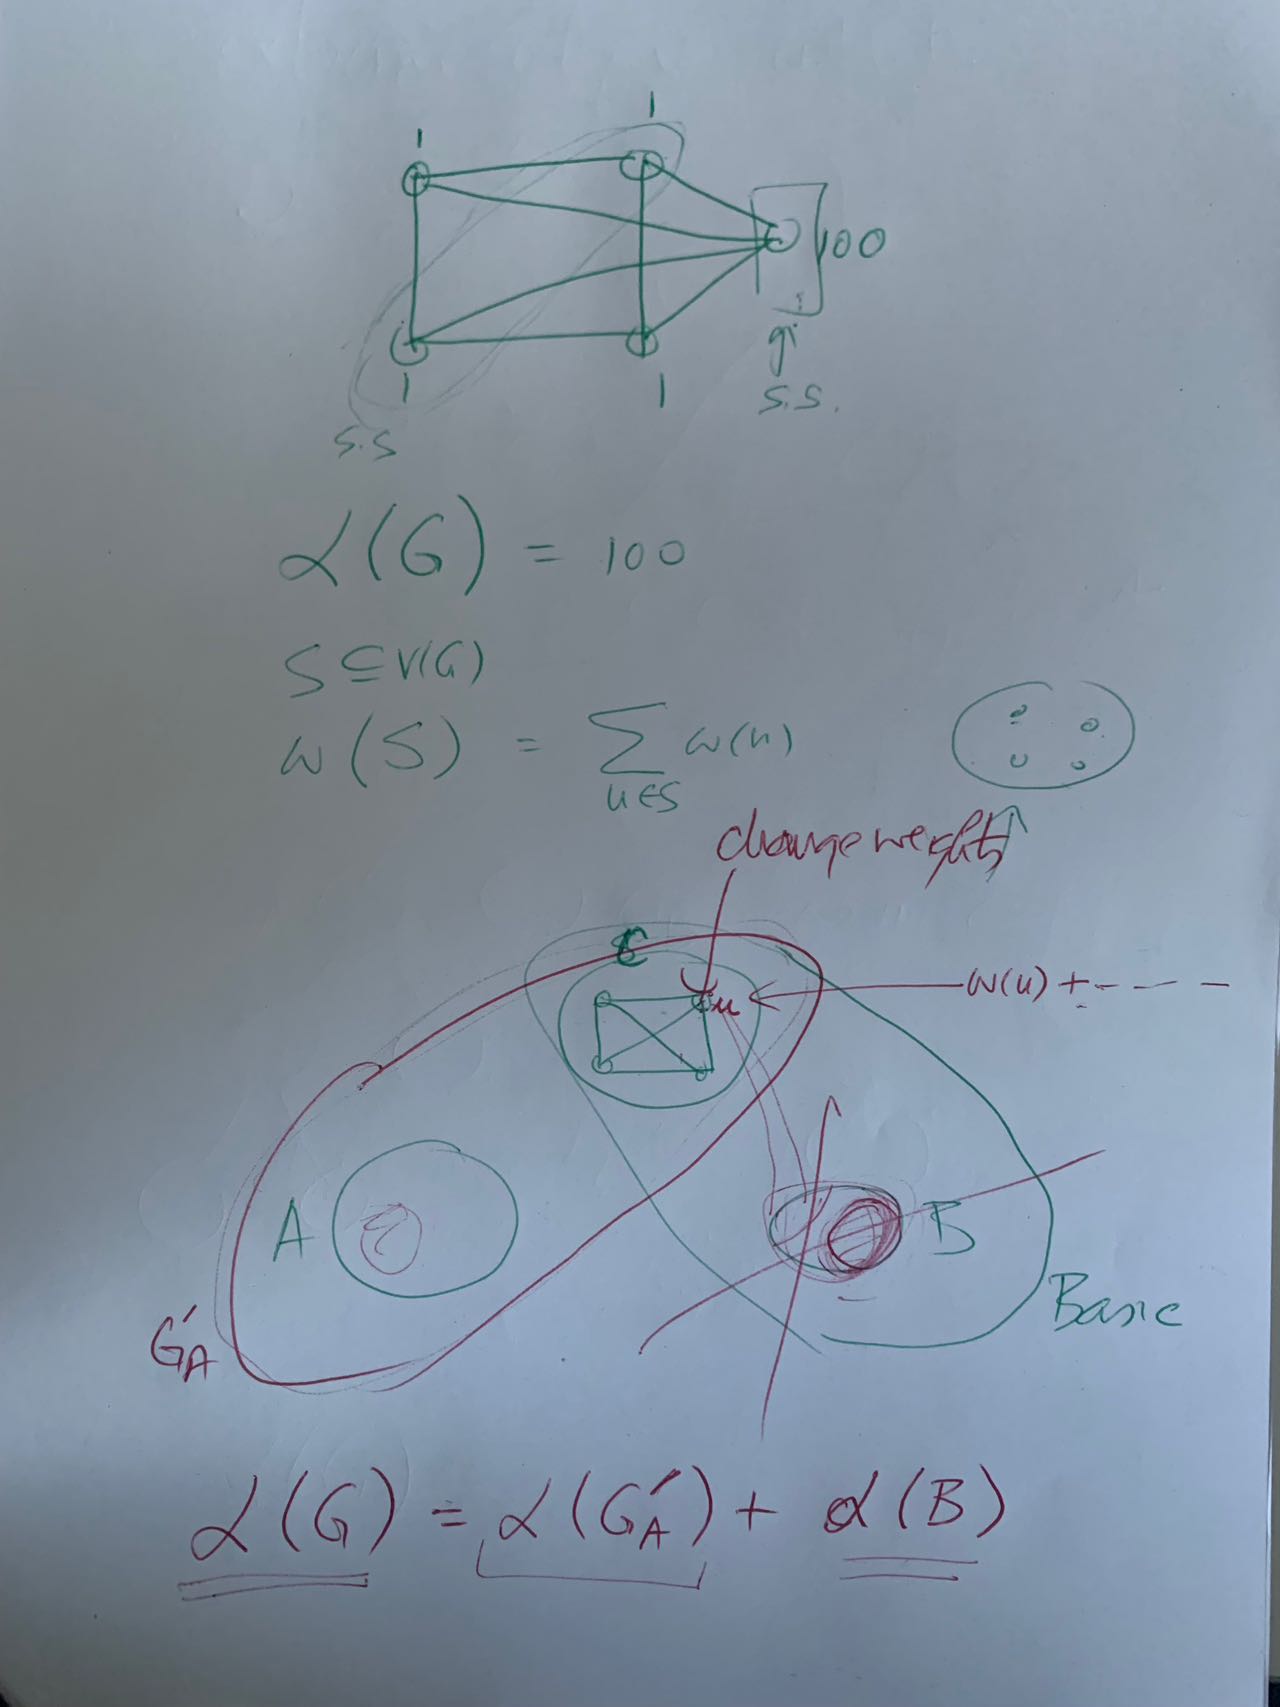 1
1
100
1
1
S.S.
S.S
α(G) = 100
S ⊆ V(G)
w(S) = ∑ w(u)
u∈S
change weights
C
u
w(u) + - - - -
A
B
Basic
G'A
α(G) = α(G'A) + α(B)